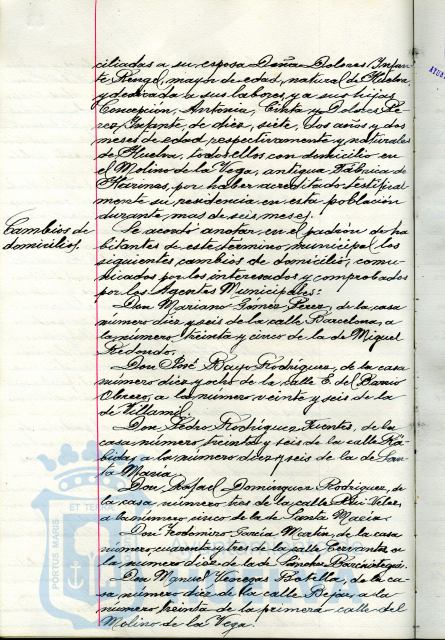 ciliadas a su esposa Doña Dolores Infan-
te Rengel, mayor de edad, natural de Huelva,
y dedicada a sus labores, y a sus hijas
Concepción, Antonia, Cinta y Dolores Pe-
rez Infante, de diez, siete, dos años y dos
meses de edad, respectivamente, y naturales
de Huelva, todos ellos con domicilio en
el Molino de la Vega, antigua Fábrica de
Harinas, por haber acreditado testifical-
mente su residencia en esta población
durante mas de seis meses.
Cambios de
domicilio.
Se acordó anotar en el padrón de ha-
bitantes de este término municipal los
siguientes cambios de domicilio, comu-
nicados por los interesados y comprobados
por los Agentes Municipales:
Don Mariano Gómez Perez, de la casa
número diez y seis de la calle Barcelona, a
la número treinta y cinco de la de Miguel
Redondo.
Don José Bayo Rodriguez, de la casa
número diez y ocho de la calle E. del Barrio
Obrero, a la número veinte y seis de la
de Villamil.
Don Pedro Rodriguez Fuentes, de la
casa número treinta y seis de la calle Rá-
bida, a la número diez y seis de la de San-
ta María.
Don Rafael Dominguez Rodriguez, de
la casa número tres de la calle Rui Velez,
a la número cinco de la de Santa María.
Don Federico García Martin, de la casa
número cuarenta y tres de la calle Cervantes, a
la número doce de la de Sanchez Barcáiztegui.
Don Manuel Venegas Botello, de la ca-
sa número diez de la calle Bejar, a la
número treinta de la primera calle del
Molino de la Vega.
PORTUS MARIS
ET TERRÆ